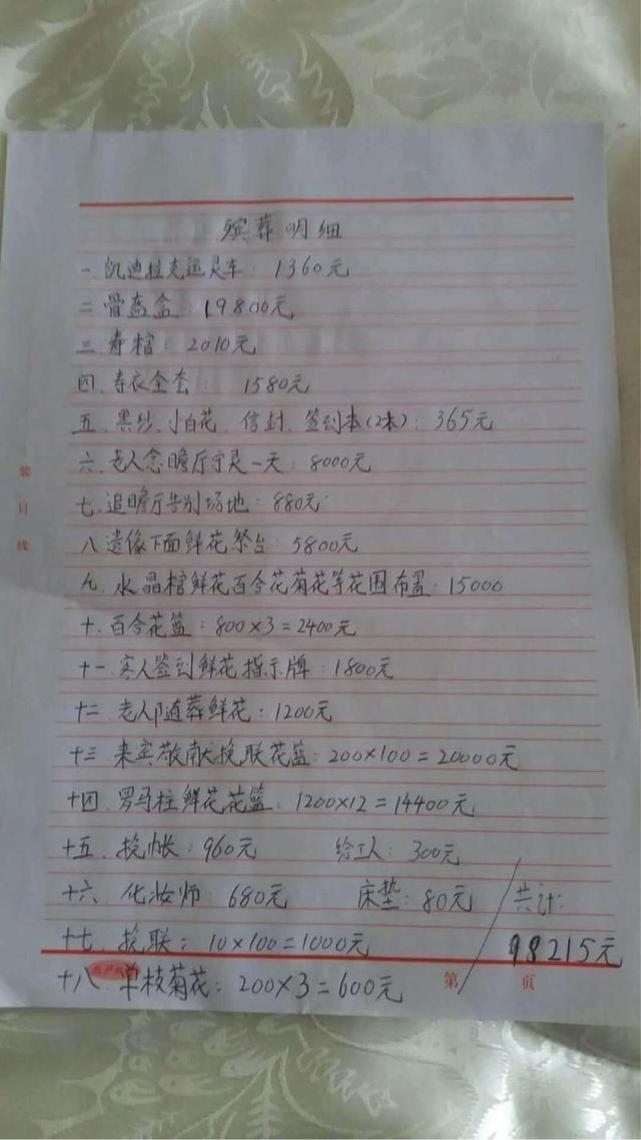 殡葬明细
一 凯迪拉克运灵车：1360元
二 骨灰盒：19800元
三 寿棺：2010元
四 寿衣全套：1580元
五 黑纱、小白花、信封、签到本(2本)：365元
六 老人念瞻厅守灵一天：8000元
七 追瞻厅告别场地：880元
八 遗像下面鲜花祭台：5800元
九 水晶棺鲜花百合花菊花等花围布置：15000
十 百合花篮：800×3=2400元
十一 宾人签到鲜花指示牌：1800元
十二 老人随葬鲜花：1200元
十三 来宾敬献挽联花篮：200×100=20000元
十四 罗马柱鲜花花篮：1200×12=14400元
十五 挽帐：960元 给工人：300元
十六 化妆师：680元 床垫：80元 共计：
十七 挽联：10×100=1000元 98215元
十八 单枝菊花：200×3=600元
第 页
装
订
线